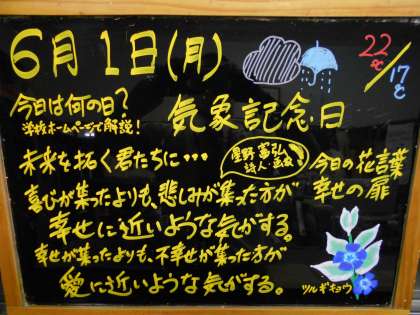 6月1日(月)
22℃/17℃
今日は何の日?
学校ホームページで解説!
気象記念日
未来を拓く君たちに…
星野富弘
詩人・画家
今日の花言葉
幸せの扉
喜びが集ったよりも、悲しみが集った方が
幸せに近いような気がする。
幸せが集ったよりも、不幸せが集った方が
愛に近いような気がする。
ツルギキョウ